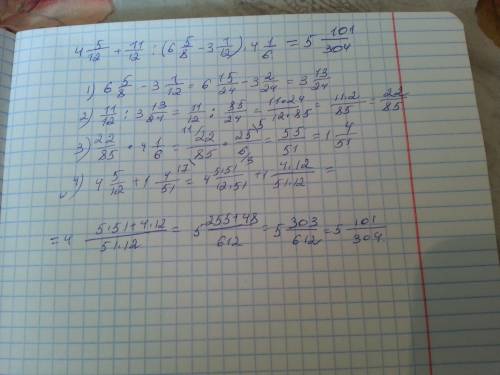 4 5/12 + 11/12 : (6 5/8 - 3 1/12) · 4 1/6 = 5 101/304
1) 6 5/8 - 3 1/12 = 6 15/24 - 3 2/24 = 3 13/24
2) 11/12 : 3 13/24 = 11/12 : 85/24 = 11·24/12·85 = 11·2/85 = 22/85
3) 22/85 · 4 1/6 = 22/85 · 25/6 = 55/51 = 1 4/51
4) 4 5/12 + 1 4/51 = 4 5·51/12·51 + 1 4·12/51·12 =
= 4 5·51+4·12/51·12 = 5 255+48/612 = 5 303/612 = 5 101/304